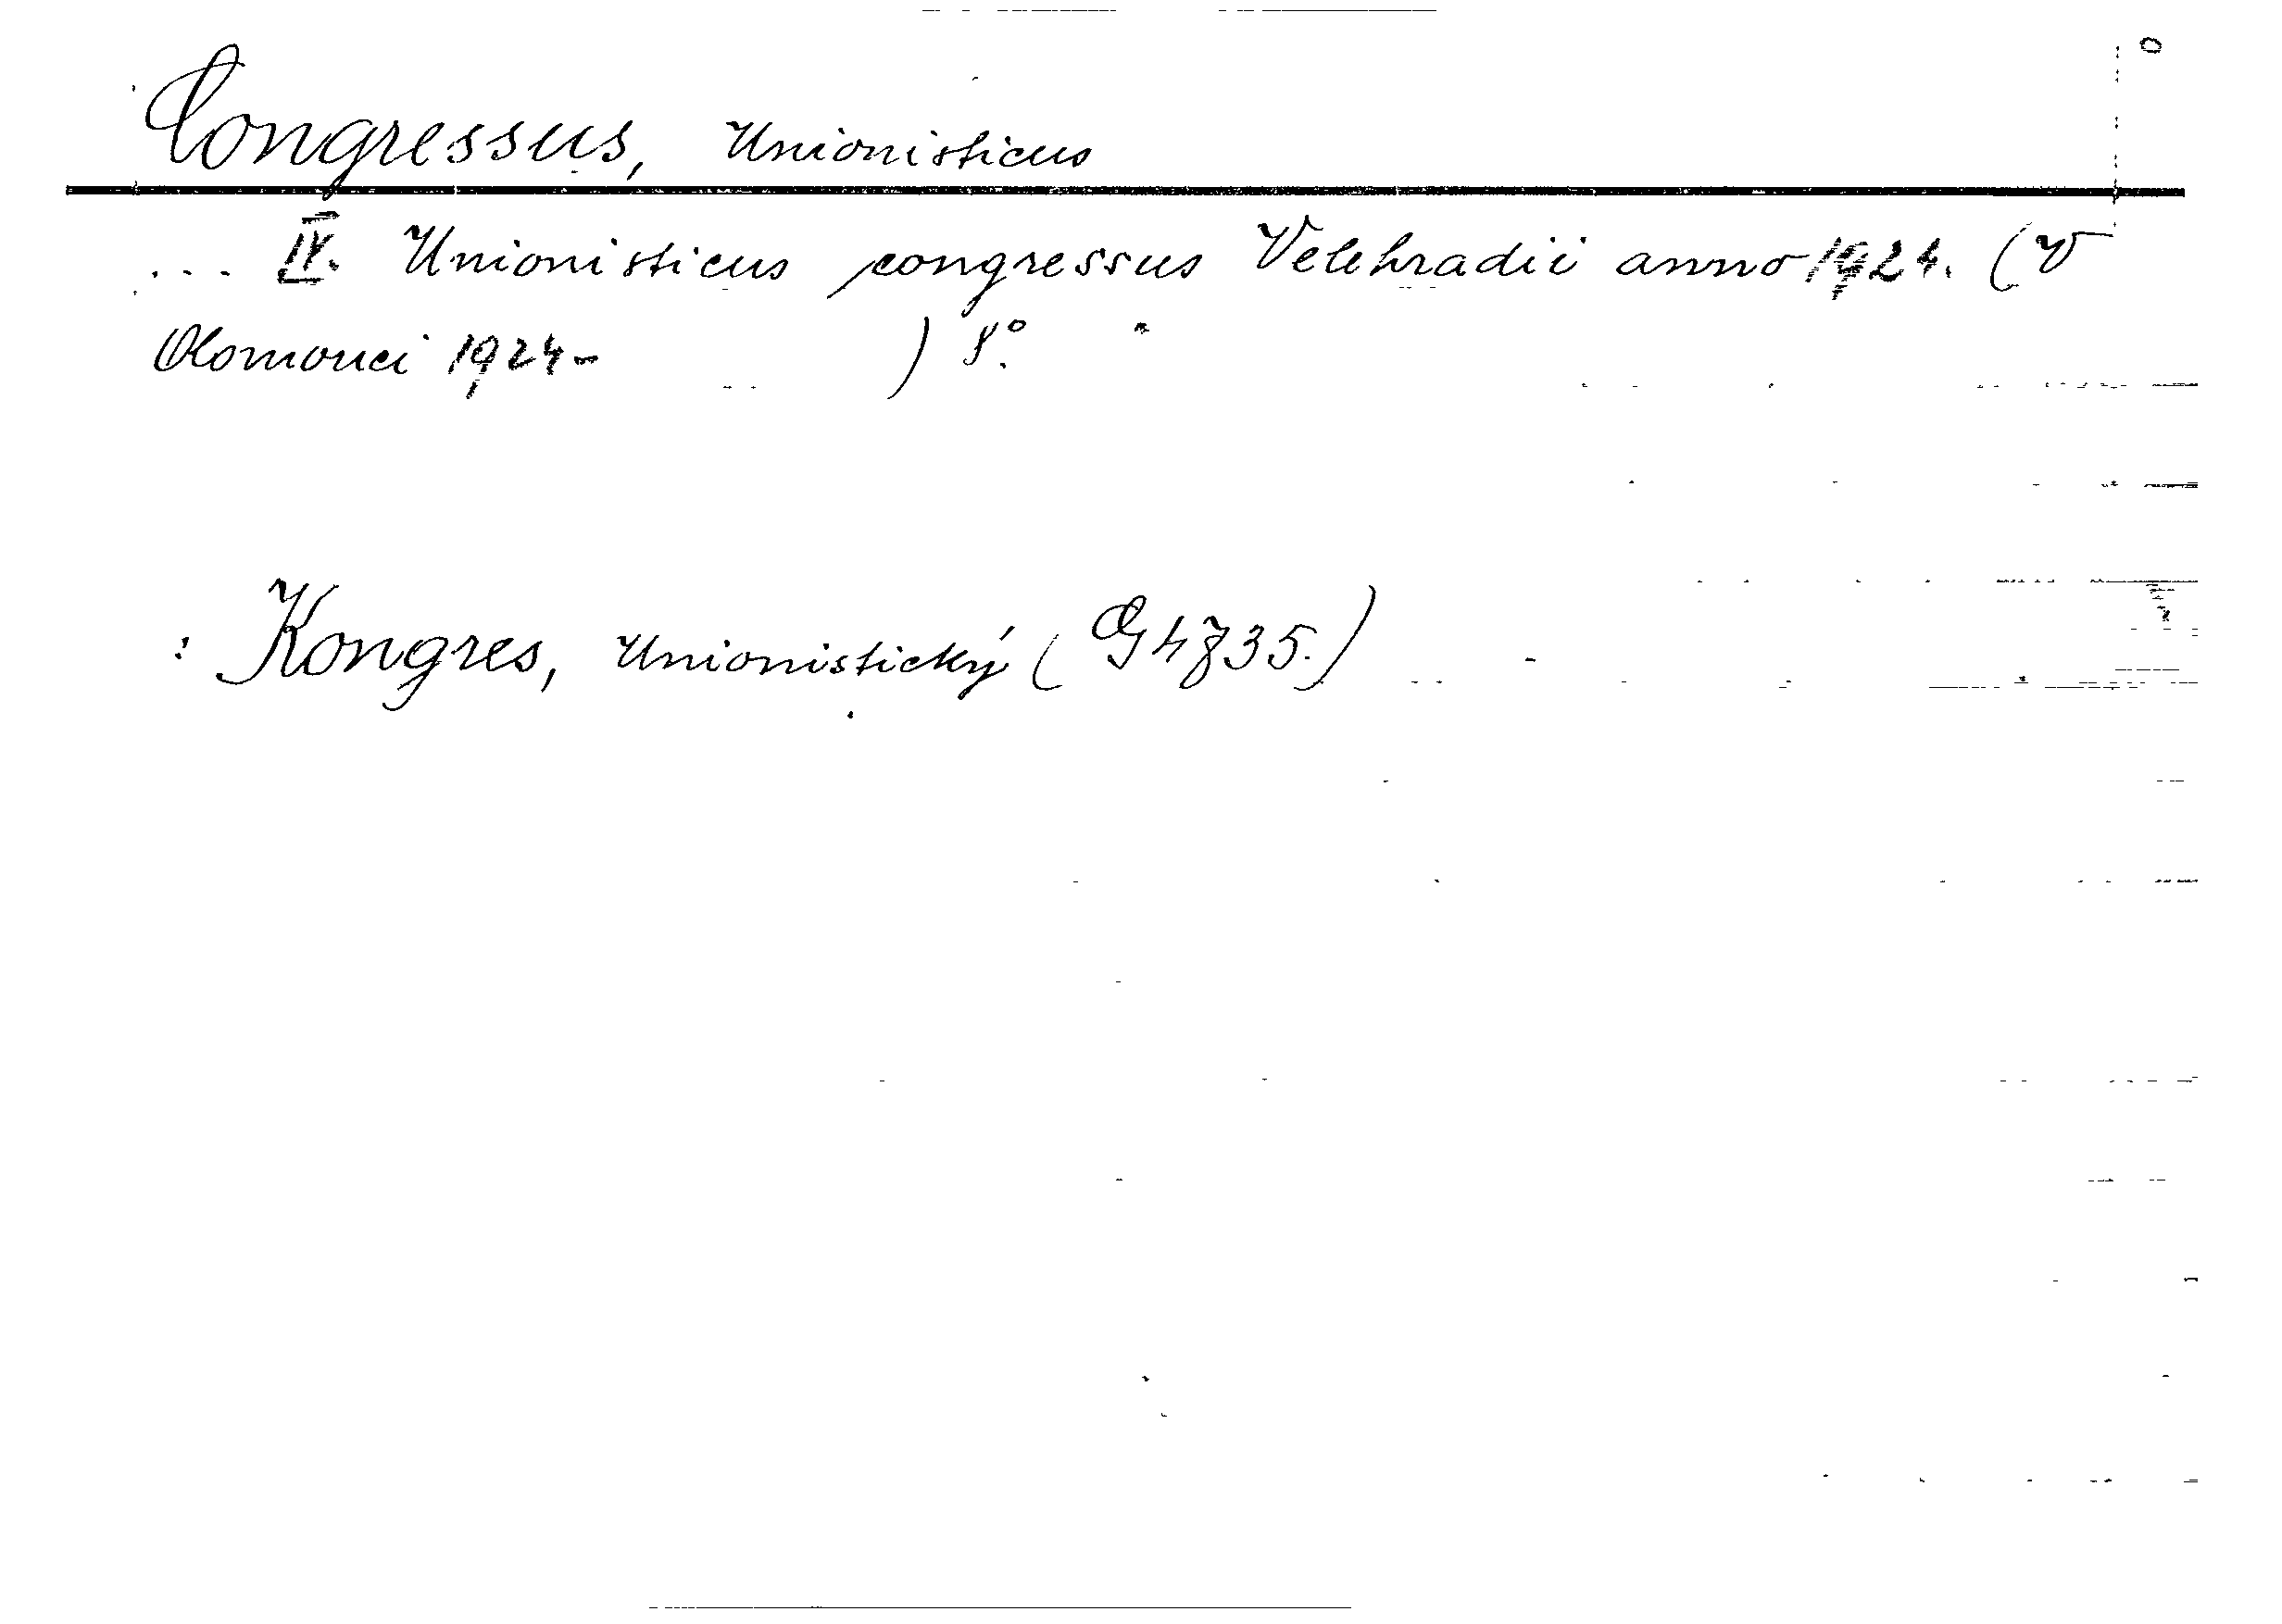 Congressus, Unionisticus
... IV. Unionisticus congressus Velehradii anno 1924. (V
Olomouci 1924- ) 8°.
: Kongres, Unionistický (G 4735.)